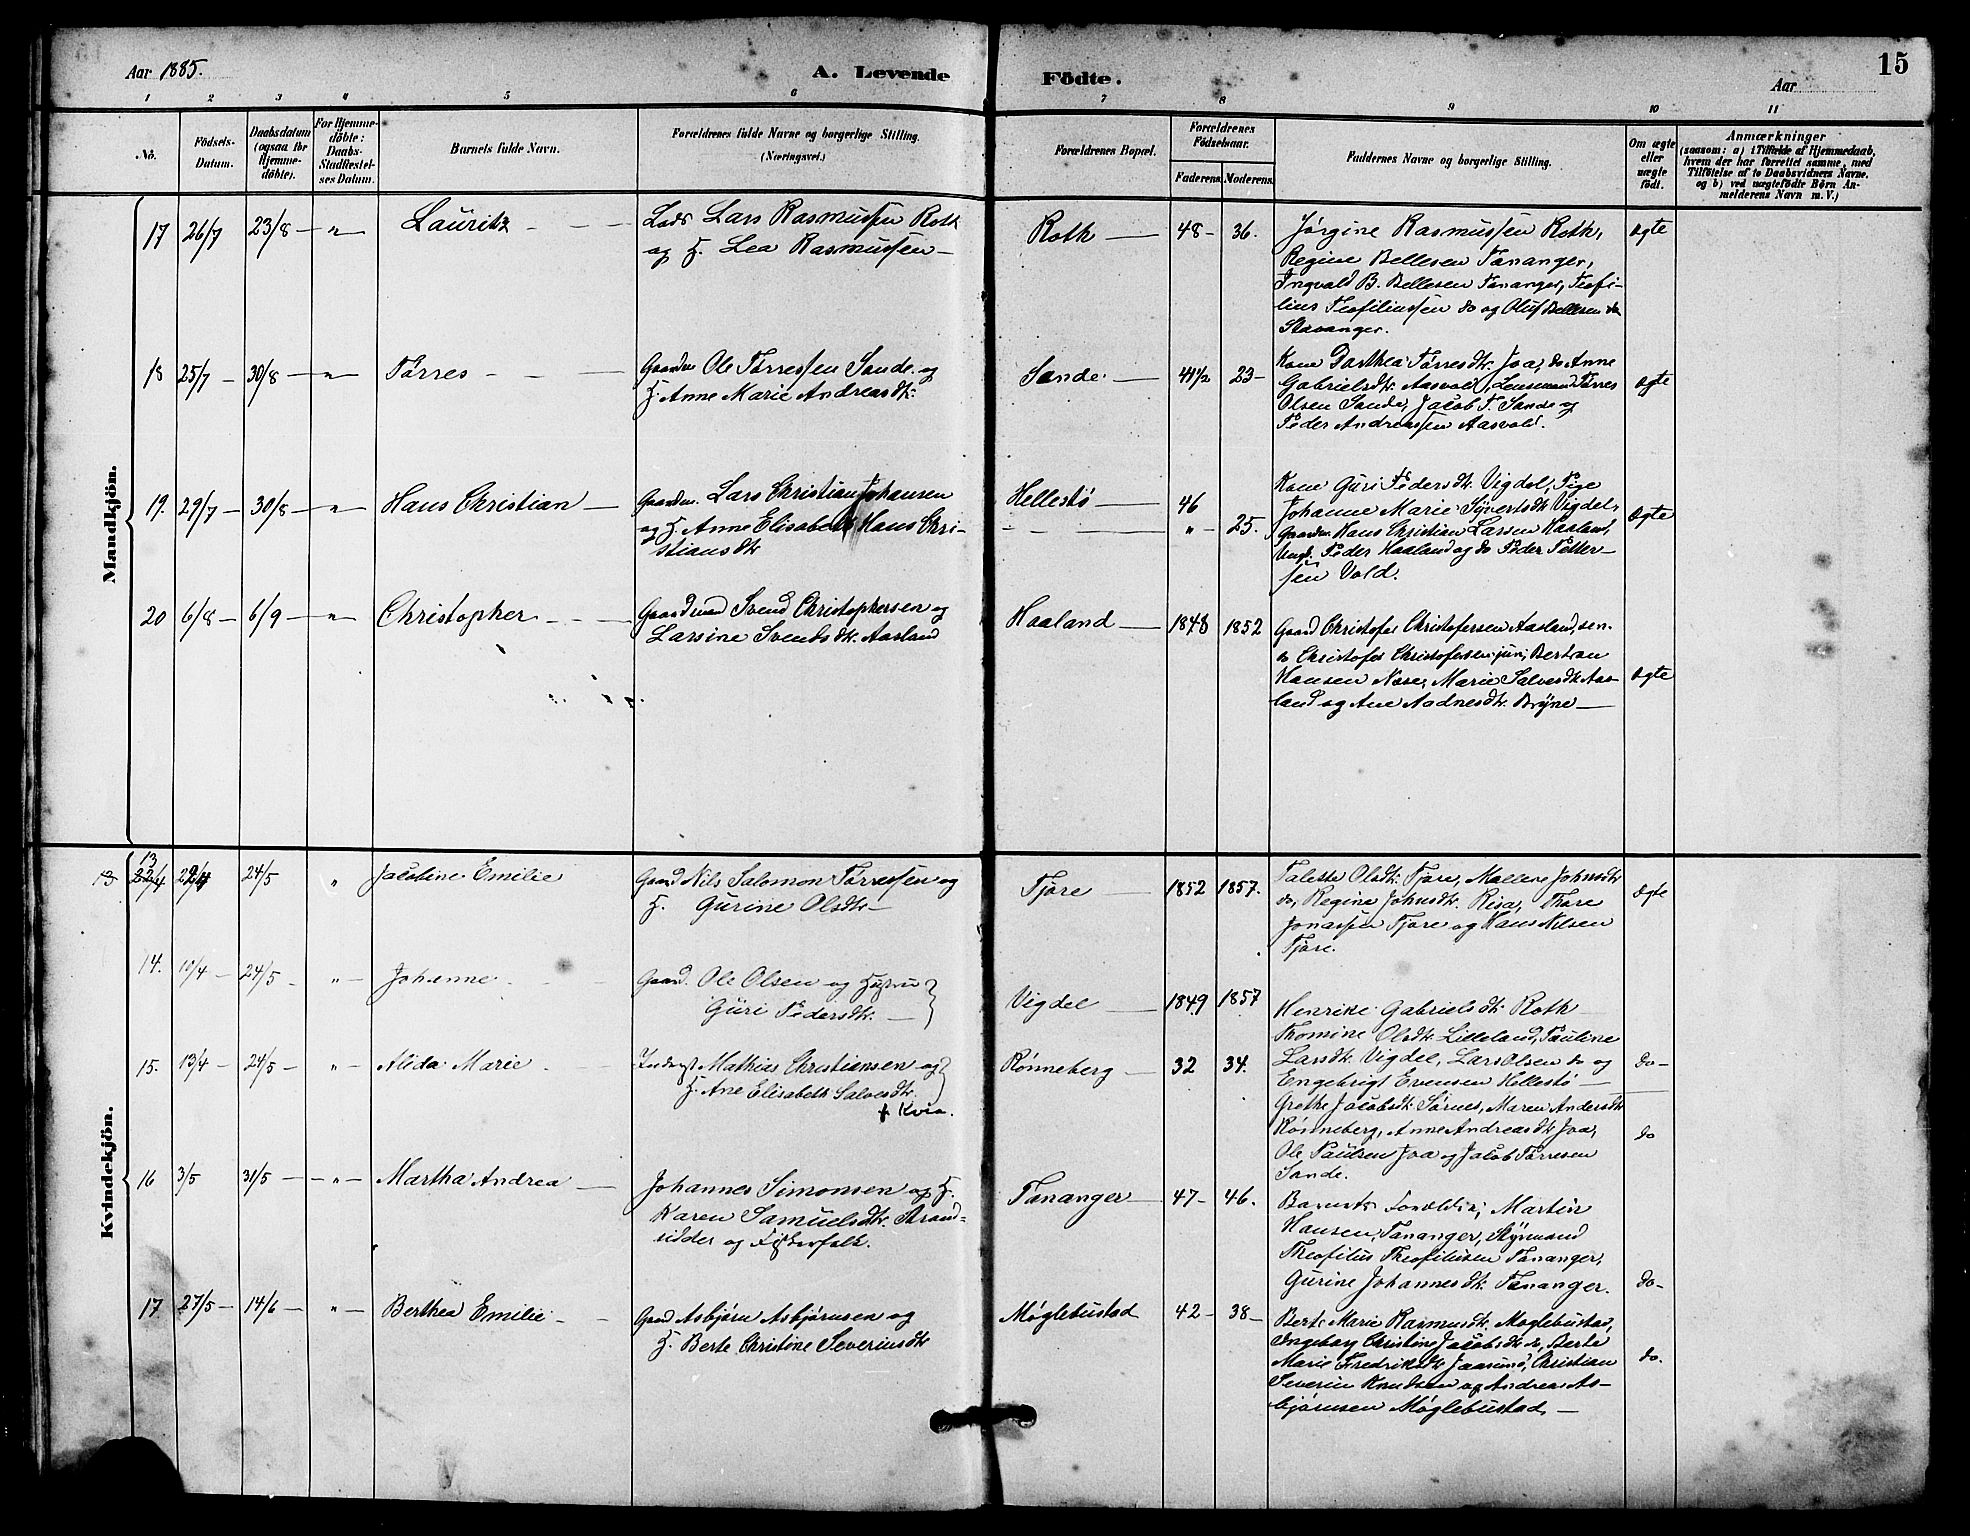 Aar 1885.
A. Levende
Födte.
Aar
15
1 2 3 4 5 6 7 8 9 10 11
No.
Födsels-
Datum.
Daabsdatum
(ogsaa for
Hjemme-
döbte).
For Hjemme-
döbte:
Daabs-
Stadfæstel-
ses Datum.
Barnets fulde Navn.
Forældrenes fulde Navne og borgerlige Stilling.
(Næringsvei.)
Forældrenes Bopæl.
Forældrenes
Födselsaar.
Faderens. Moderens.
Faddernes Navne og borgerlige Stilling.
Om ægte
eller
uægte
födt.
Anmærkninger
(saasom: a) i Tilfælde af Hjemmedaab,
hvem der har forrettet samme, med
Tilföielse af to Daabsvidners Navne.
og b) ved uægtefödte Börn An-
melderens Navn m. V.)
Mandkjön.
17 26/7 23/8 – " – Lauritz – – – Lods Lars Rasmussen Roth
og H. Lea Rasmussen –
Roth – 48 – 36.
Jørgine Rasmussen Roth,
Regine Bellesen Tananger,
Ingvald B. Bellesen Tananger, Teofi-
lius Teofiliussen do og Oluf Bellesen
Stavanger.
ægte
18 25/7 – 30/8 – " – Tørres – – – Gaardm Ole Tørressen Sande og
H. Anne Marie Andreasdtr.
Sande. – 41 1/2 23 –
Kone Dorthea Tørresdtr. Joa, do Anne
Gabrielsdtr. Aasvold, Lensmand Tørres
Olsen Sande, Jacob T. Sande og
Peder Andreassen Aasvold.
ægte
19. 29/7 – 30/8 – " – Hans Christian – Gaardm. Lars Christian Johansen
og H. Anne Elisabeth Hans Chri-
stiansdtr
Hellestø – 46
" – 25.
Kone Guri Pedersdtr. Vigdel, Pige
Johanne Marie Syvertsdtr. Vigdel,
Gaardm. Hans Christian Larsen Haaland,
Ungk. Peder Haaland og do Peder Petter-
sen Vold.
ægte
20 6/8 – 6/9 – " – Christopher – – – Gaardmand Svend Christophersen og
Larsine Svendsdtr. Aasland
Haaland – 1848 1852
Gaard Christofer Christofersen Aasland, sen.
do Christofer Christofersen jun, Bertran
Hansen Næse, Marie Salvesdtr. Aas-
land og Ane Aadnesdtr. Bryne –
ægte
Kvindekjön.
13 13 22/4 22/4 24/5 " Jacobine Emilie Gaard Nils Salomon Tørressen og
H. Gurine Olsdtr –
Tjøre – 1852 1857.
Taleste Olsdtr. Tjøre, Mallene Johnsdtr
do, Regine Johnsdtr. Risa, Thore
Jonassen Tjøre og Hans Nilsen
Tjøre.
ægte
14. 10/4 – 24/5 – " – Johanne. – Gaard. Ole Olsen og Hustru
Guri Pedersdtr. –
Vigdel – 1849 1857
Henrike Gabrielsdtr. Roth –
Thomine Olsdtr. Lilleland, Pauline
Larsdtr. Vigdel, Lars Olsen do og
Engebrigt Evensen Hellestø –
do –
15. 13/4 – 24/5 – " – Alida Marie – – Inderst Mathias Christensen og
H. Ane Elisabeth Salvesdtr.
f Kvia.
Rønneberg – 32 34.
Grethe Jacobsdtr Sørnes, Maren Andersdtr
Rønneberg, Anne Andreasdtr Joa,
Ole Paulsen Joa og Jacob Tørresen
Sande.
do
16 3/5 31/5 – " – Martha Andrea – Johannes Simonsen og H.
Karen Samuelsdtr. Strand-
sidder og Fiskerfolk.
Tananger – 47 – 46.
Barnets Forældre, Martin
Hansen, Tananger, Styrmand
Theofilus Theofiliusen Tananger,
Gurine Johannesdtr. Tananger.
do –
17. 27/5 – 14/6 – " – Berthea Emilie – – Gaard Asbjørn Asbjørnsen og
H. Berte Christine Severinsdtr
Møglebustad 42 – 38 –
Berte Marie Rasmusdtr. Møglebustad,
Ingeborg Christine Jacobsdtr do, Berte
Marie Fredriksdtr Jaasund, Christian
Severin Knudsen og Andreas As-
bjørnsen Møglebustad –
do.